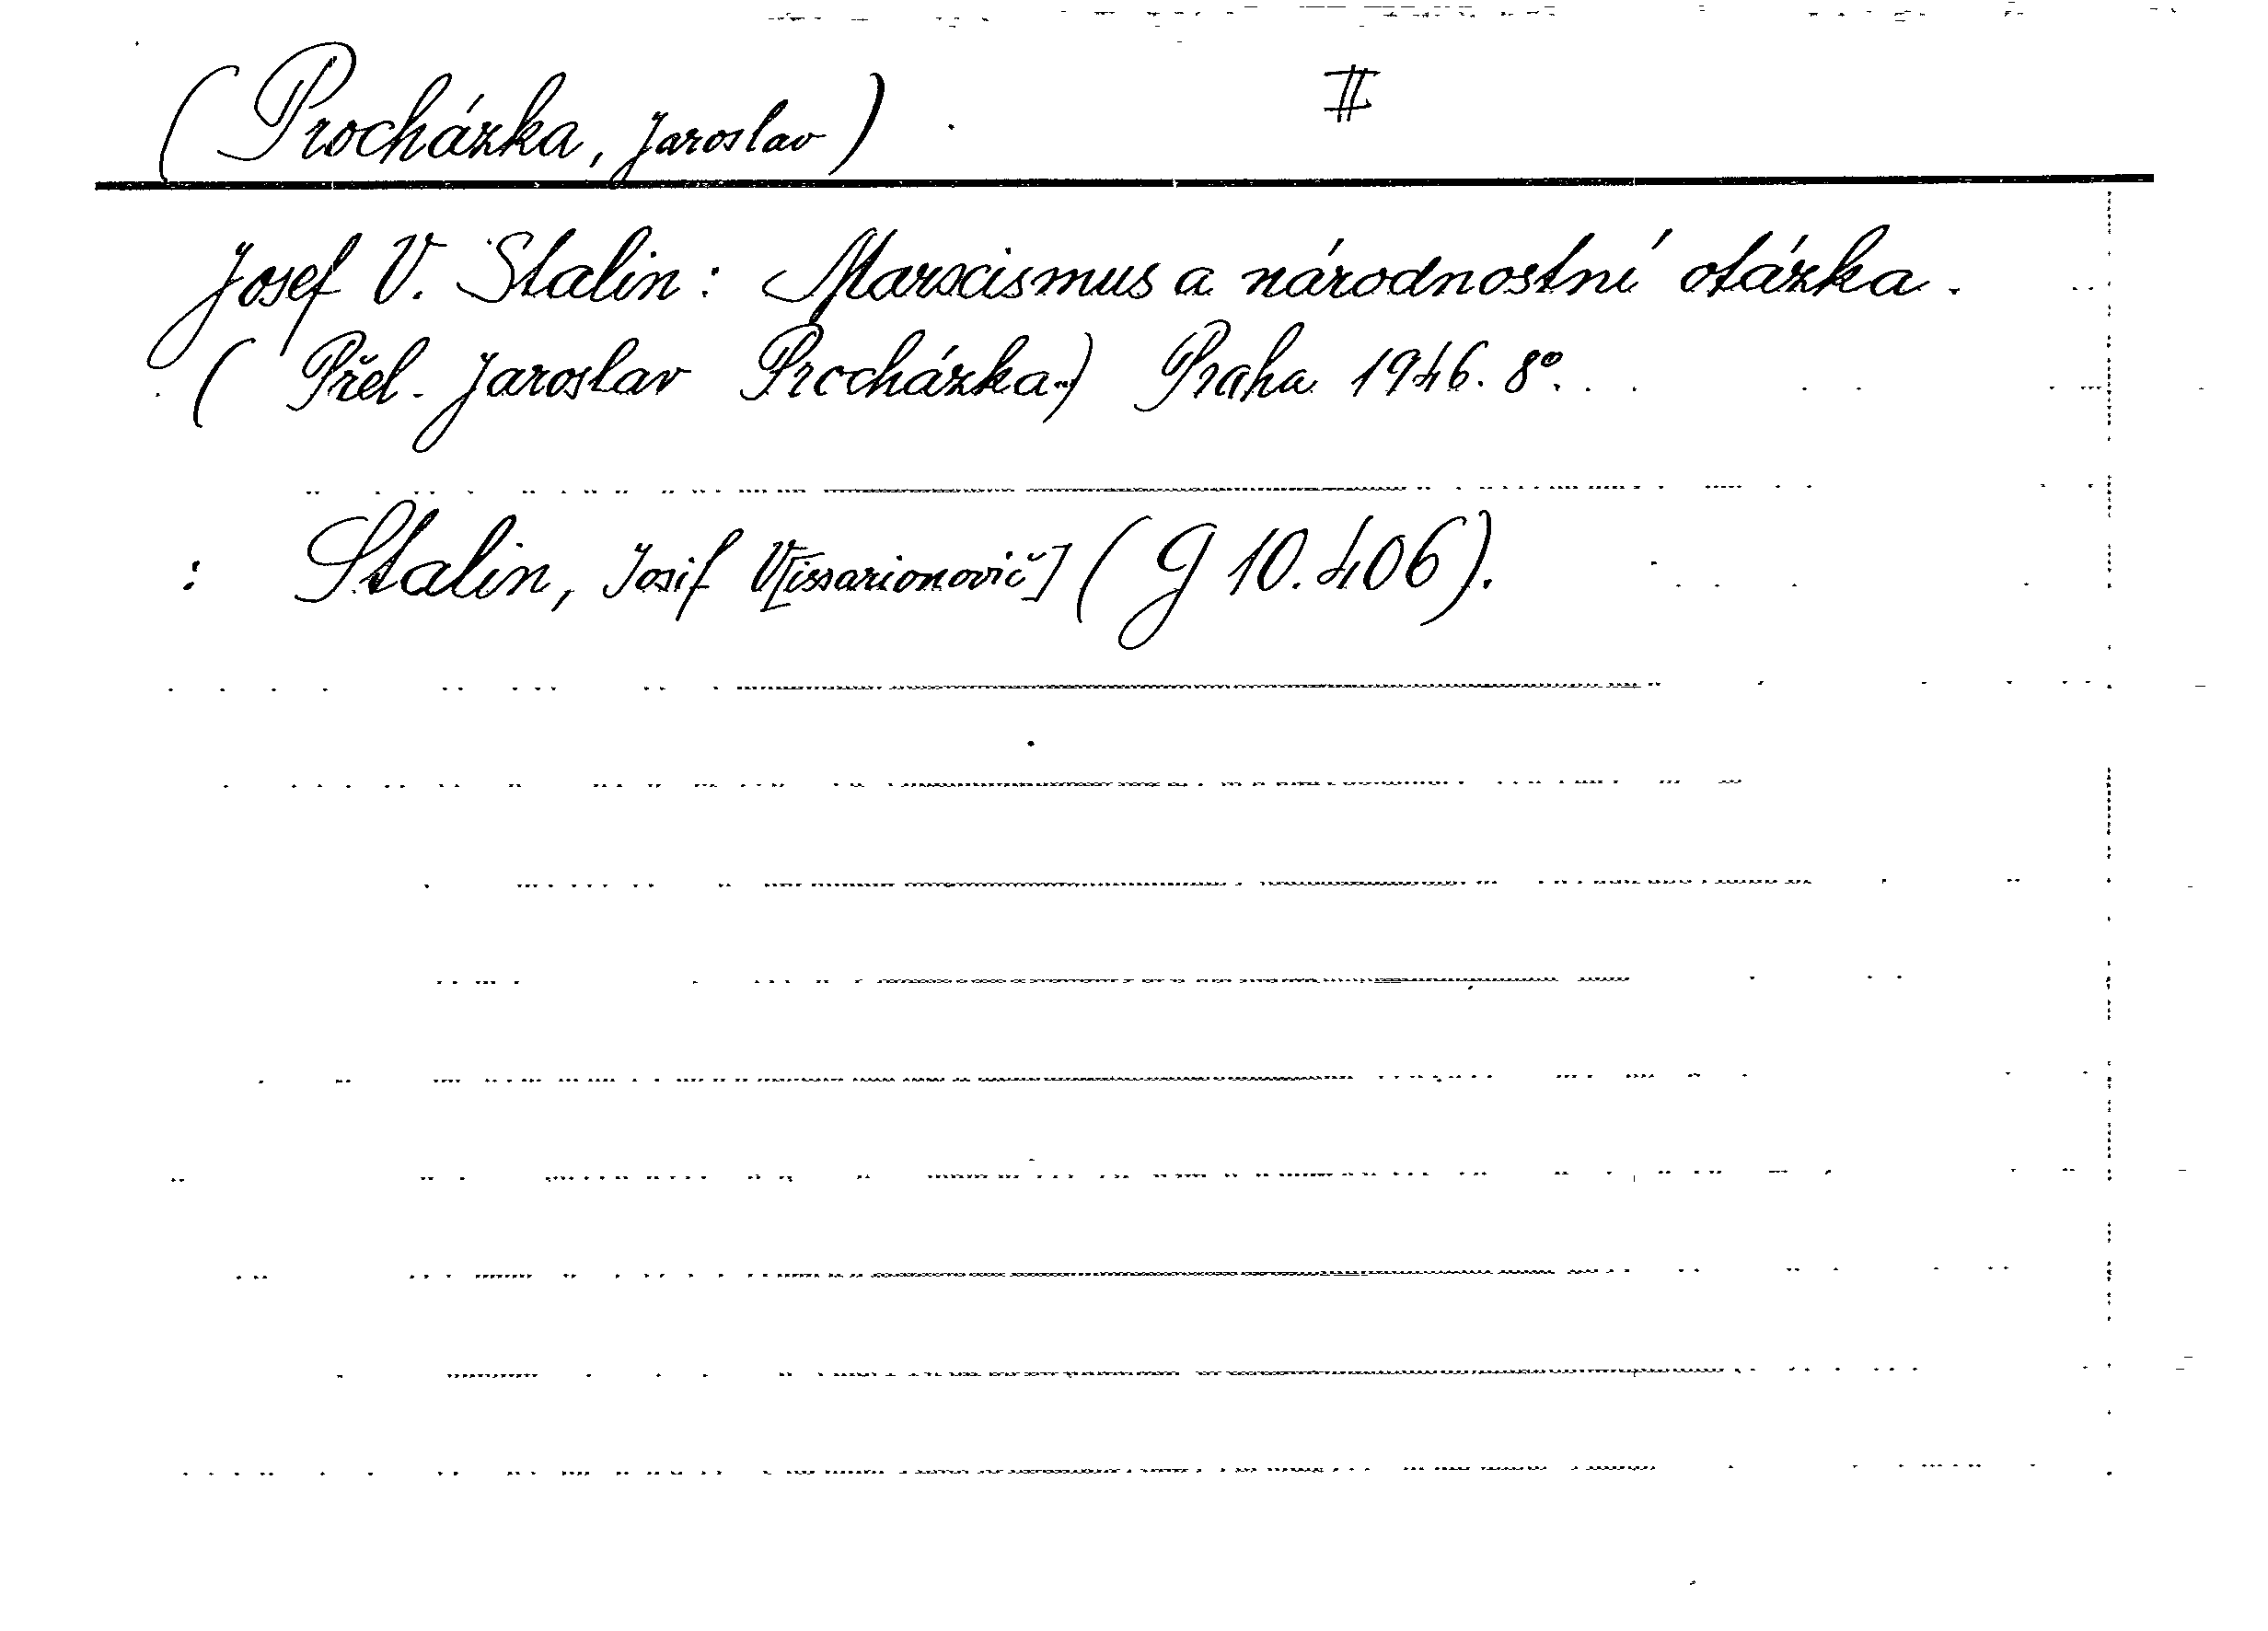 (Procházka, Jaroslav) II
Josef V. Stalin: Marxismus a národnostní otázka.
(Přel. Jaroslav Procházka.) Praha 1946. 8°.
: Stalin, Josif V[issarionovič] (G 10.406).